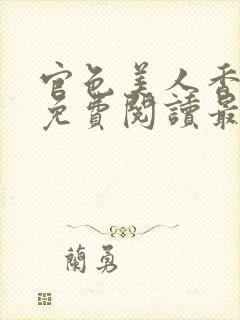 官色美人香
免費閱讀最
蘭勇